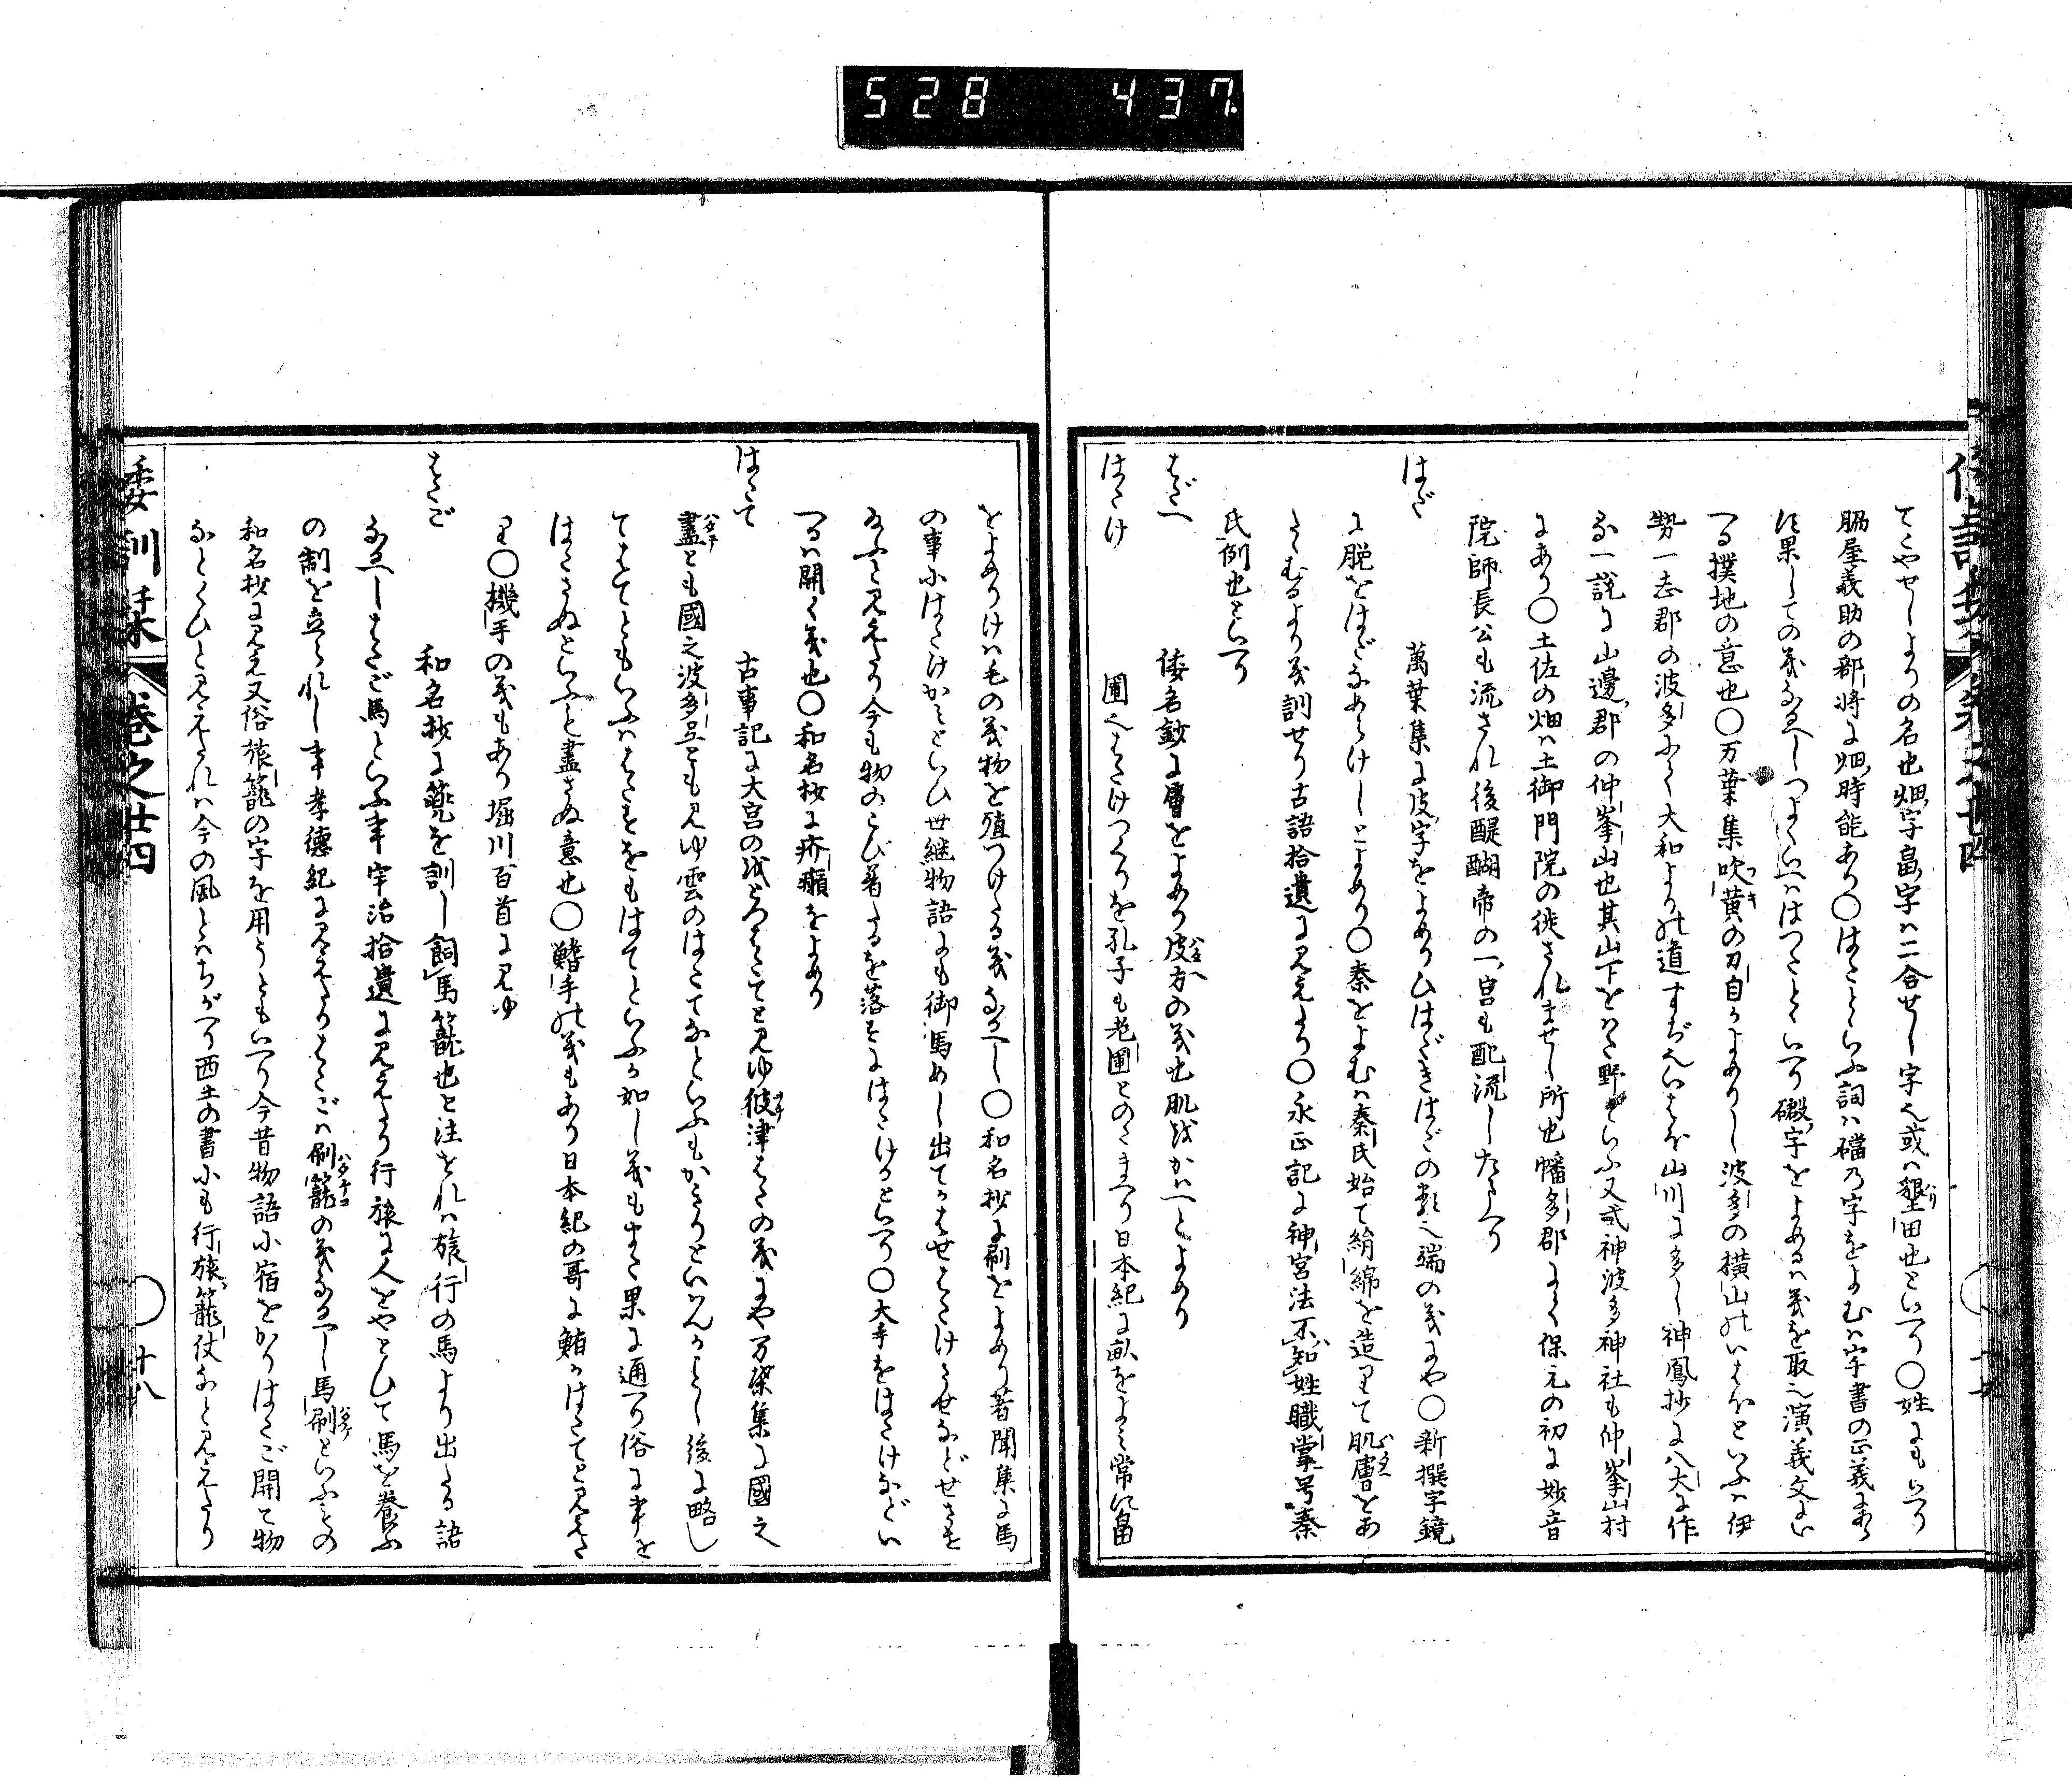 528 437
てこやせしよりの名也畑字畠字ハ二合せし字也或ハ墾田也といへり〇姓にもいへり
脇屋義助の郡将に畑時能あり〇はたといふ詞ハ礑乃字をよむハ字書の正義にあら
ず果しての義なるへしつよくいへはつたといへり礉字をよめるハ義を取也演義文にい
つる撲地の意也〇万葉集吹黄の刀自かよめりし波多の横山のいはほといふハ伊
勢一志郡の波多にて大和よりの道すぢ也いはほ山川に多し神鳳抄に八太に作
る一説に山邊郡の仲峯山也其山下をはた野といふ又式神波多神社も仲峯山村
にあり〇土佐の畑ハ土御門院の徙されませし所也幡多郡にて保元の初に妙音
院師長公も流され後醍醐帝の一宮も配流したまへり
はだ 萬葉集に皮字をよめりひはだきはだの類也端の義にや〇新撰字鏡
に脱をはだなあらけしとよめり〇秦をよむハ秦氏始て絹綿を造りて肌膚をあ
たゝむるより義訓せり古語拾遺に見えたり〇永正記に神宮法不知姓職掌号秦
氏例也といへり
はだへ 倭名鈔に膚をよめり皮方の義也肌をかハへとよめり
はたけ 圃也はたけつくりを孔子も老圃とのたまへり日本紀に畝をよみ常に畠
をよめりけハ毛の義物を殖つけたる義なるへし〇和名抄に刷をよめり著聞集に馬
の事にはたけかみといひ世継物語にも御馬めし出てかはせはたけさせなどせさせ
給ふと見えたり今も物のこび着たるを落すにはたけるといへり〇大手をはたけなどい
へるハ開く義也〇和名抄に疥癩をよめり
はたて 古事記に大宮の彼つはたてと見ゆ彼津はたの義にや万葉集に國之
盡とも國之波多弖とも見ゆ雲のはたてなといふもかきりといはんかことし後に略し
てはてともいふハはたすをもはてといふか如し義もまた果に通へり俗に事を
はたさぬといふと盡さぬ意也〇鰭手の義もあり日本紀の哥に鮪かはたてと見えた
り〇機手の義もあり堀川百首に見ゆ
はたご 和名抄に篼を訓し飼馬籠也と注されハ旅行の馬より出たる語
なるへしはたご馬といふ事宇治拾遺に見えたり行旅に人をやとひて馬を養ふ
の制を立られし事孝德紀に見えたりはたごハ刷籠の義なるへし馬刷といふもの
和名抄に見え又俗旅籠の字を用うともいへり今昔物語に宿をかりはたご開て物
なとくひと見えたれハ今の風とハちがへり西土の書にも行旅籠仗なと見えたり
倭訓栞 巻之廿四 〇 十八